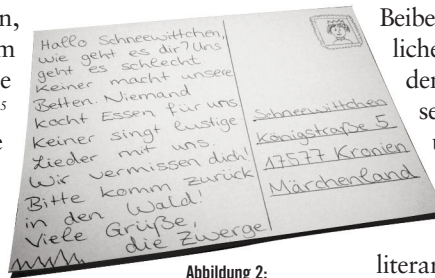 en,
m
e
5
e
Hallo Schneewittchen,
wie geht es dir? Uns
geht es schlecht
Keiner macht unsere
Betten. Niemand
kocht Essen für uns
Keiner singt lustige
Lieder mit uns.
Wir vermissen dich!
Bitte komm zurück
in den Wald!
Viele Grüße,
die Zwerge
Schneewittchen
Königstraße 5
17577 Kronien
Märchenland
Beibe
liche
den
se
literar
Abbildung 2: